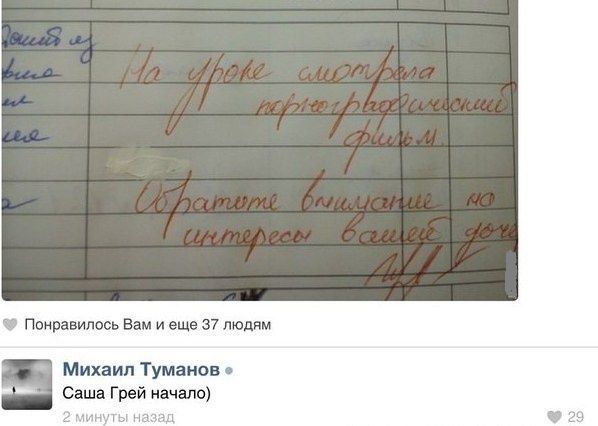 На уроке смотрела
порнографический
фильм.
Обратите внимание на
интересы вашей доче
Понравилось Вам и еще 37 людям
Михаил Туманов
Саша Грей начало)
2 минуты назад
29